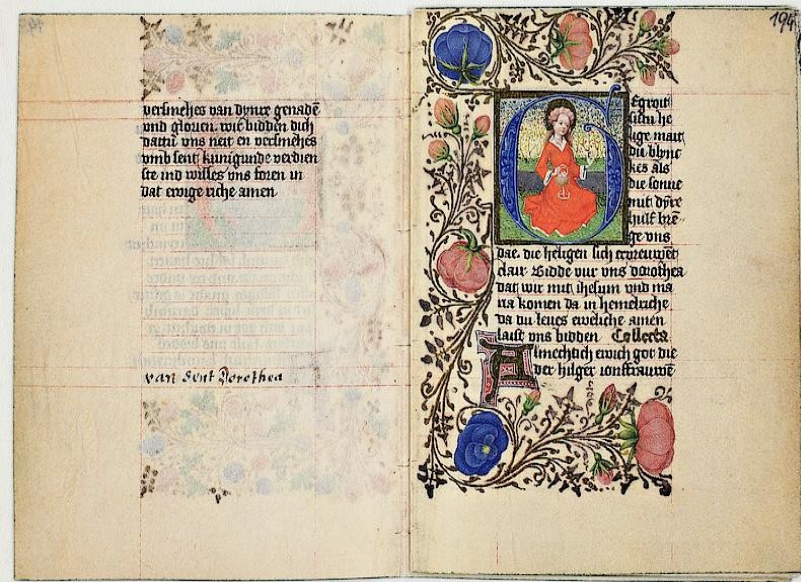 versmehes van dynre genadē
vnd glorien. wir bidden dich
dattu vns neit en versmehes
vmb sent kunigunde verdien
ste ind willes vns foren in
dat ewige riche amen
van sent Dorothea
194
Egroit
sistu he
lige mait
du blync
kes als
die sonne
mit dyre
hulf brē
ge vns
dae. die heligen sich ervreuwēt
clair. Bidde vur vns dorothea
dat wir mit ihesum vnd ma
ria komen da in hemelriche
da du leues eweliche amen
laist vns bidden Collecta
Almechtich ewich got die
der hilger ionffrauwē